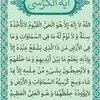 آيَةُ الْكُرْسِي
اللَّهُ لَا إِلَٰهَ إِلَّا هُوَ الْحَيُّ الْقَيُّومُ لَا تَأْخُذُهُ
سِنَةٌ وَلَا نَوْمٌ لَهُ مَا فِي السَّمَاوَاتِ وَمَا فِي
الْأَرْضِ مَنْ ذَا الَّذِي يَشْفَعُ عِنْدَهُ إِلَّا
بِإِذْنِهِ يَعْلَمُ مَا بَيْنَ أَيْدِيهِمْ وَمَا خَلْفَهُمْ
وَلَا يُحِيطُونَ بِشَيْءٍ مِنْ عِلْمِهِ إِلَّا بِمَا
شَاءَ وَسِعَ كُرْسِيُّهُ السَّمَاوَاتِ وَالْأَرْضَ
وَلَا يَئُودُهُ حِفْظُهُمَا وَهُوَ الْعَلِيُّ الْعَظِيمُ